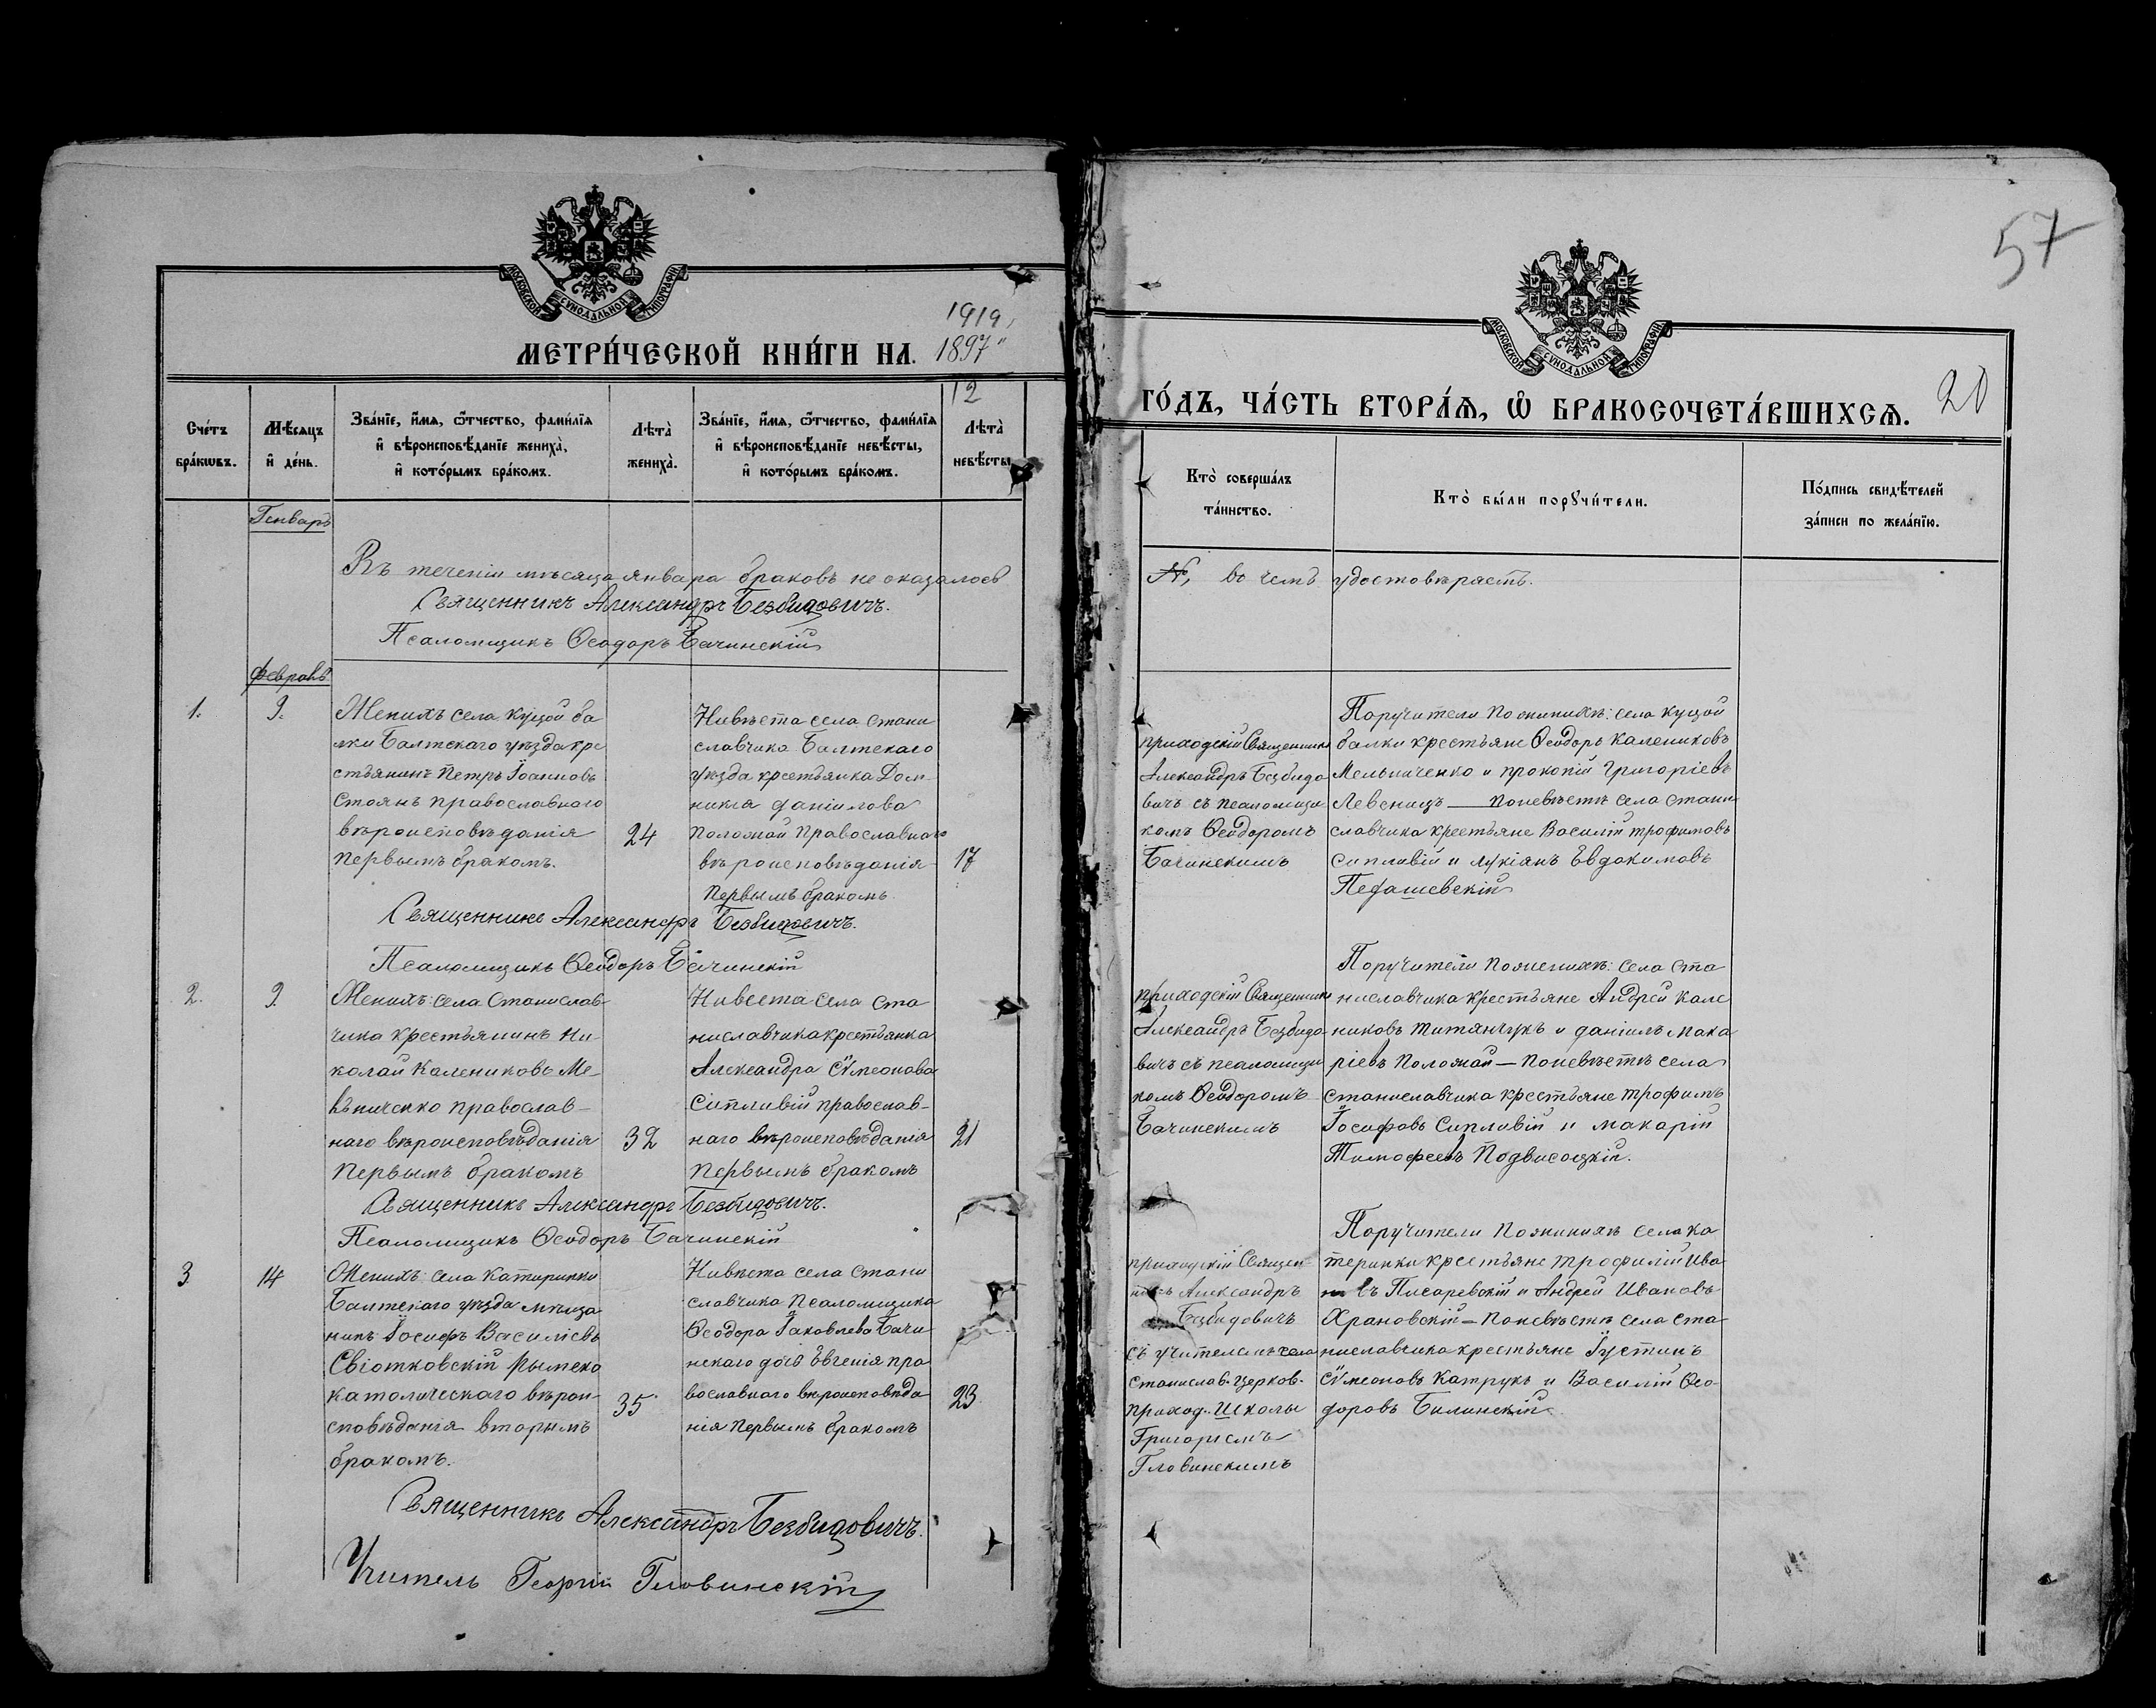 57
МОСКОВСКОЙ СѴНОДАЛЬНОЙ ТИПОГРАФІИ
1919
МЕТРИ́ЧЕСКОЙ КНИ́ГИ НА 1897
12
Сче́тъ бра́кωвъ.
Мѣ́сяцъ и҆ де́нь.
Зва́нїе, и҆́мѧ, ѻ҆́тчество, фами́лїѧ
и҆ вѣроисповѣ́данїе жениха̀,
и҆ кото́рымъ бра́комъ.
Лѣта̀ жениха̀.
Зва́нїе, и҆́мѧ, ѻ҆́тчество, фами́лїѧ
и҆ вѣроисповѣ́данїе невѣ́сты,
и҆ кото́рымъ бра́комъ.
Лѣта̀ невѣ́сты
Генварь
Въ теченіи мѣсяца января браковъ не оказалось
Священникъ Александръ Безбидовичъ.
Псаломщикъ Ѳеодоръ Бачинскій
февраль
1.
9.
Женихъ села Куцой ба
лки Балтскаго уѣзда кре
стьянинъ Петръ Іоанновъ
Стоянъ православнаго
вѣроисповѣданія
первымъ бракомъ.
24
Нивѣста села Стани
славчика Балтскаго
уѣзда крестьянка Дом
никія Даніилова
Положай Православнаго
вѣроисповѣданія
Первымъ бракомъ
17
Священникъ Александръ Безбидовичъ.
Псаломщикъ Ѳеодоръ Бачинскій
2.
9.
Женихъ: села Станислав
чика крестьянинъ Ни-
колай Калениковъ Ме-
льниченко православ-
наго вѣроисповѣданія
Первымъ бракомъ
32
Нивеста села Ста
ниславчика крестьянка
Александра Сѵмеонова
Сипливій православ-
наго вѣроисповѣданія
первымъ бракомъ
21
Священникъ Александръ Безбидовичъ.
Псаломщикъ Ѳеодоръ Бачинскій
3
14
Женихъ: села Катиринки
Балтскаго уѣзда мѣща
нинъ Іосифъ Василіевъ
Свіотковскій Рымско
католическаго вѣрои-
сповѣданія вторымъ
бракомъ.
35
Нивѣста села Стани
славчика Псаломщика
Ѳеодора Іаковлева Бачи
нскаго дочь Евгенія пра
вославнаго вѣроисповѣда
нія Первымъ бракомъ
23
Священникъ Александръ Безбидовичъ.
Учитель Георгій Гловинскій
МОСКОВСКОЙ СѴНОДАЛЬНОЙ ТИПОГРАФІИ
ГО́ДЪ, ЧА́СТЬ ВТОРА́Ѧ, Ѡ҆ БРАКОСОЧЕТА́ВШИХСѦ.
20
Кто̀ соверша́лъ
та́инство.
Кто̀ бы́ли порꙋчи́тели.
По́дпись свидѣ́телей
за́писи по жела́нїю.
во чемъ удостовѣряетъ.
приходскій Священникъ
Александръ Безбидо
вичъ съ псаломщи
комъ Ѳеодоромъ
Бачинскимъ
Поручители По жинихѣ: села Куцой
балки крестьяне Ѳеодоръ Калениковъ
Мельниченко и прокопій Григоріевъ
Левеницъ — по невѣстѣ села Стани
славчика крестьяне Василій трофимовъ
Сипливій и лукіянъ Евдокимовъ
приходскій Священникъ
Александръ Безбидо
вичъ съ псаломщи
комъ Ѳеодоромъ
Бачинскимъ
Поручители по женихѣ: села Ста
ниславчика крестьяне Андрей Кале
никовъ Титянчукъ и даніилъ Мака
ріевъ Положай — по невѣстѣ села
Станиславчика крестьяне Трофимъ
Іосифовъ Сипливій и макарій
Тимофеевъ Подвисоцкій.
приходскій Священ-
никъ Александръ
Безбидовичъ
съ учителемъ села
Станислав. церков.
приход. Школы
Григоріемъ
Гловинскимъ
Поручители По жинихѣ села Ка
теринки крестьяне трофилій Ива
новъ Писаревскій и Андрей Ивановъ
Храновскій — По невѣстѣ села Ста
ниславчика крестьяне Іустинъ
Сѵмеоновъ Катрукъ и Василій Ѳео-
доровъ Билинскій